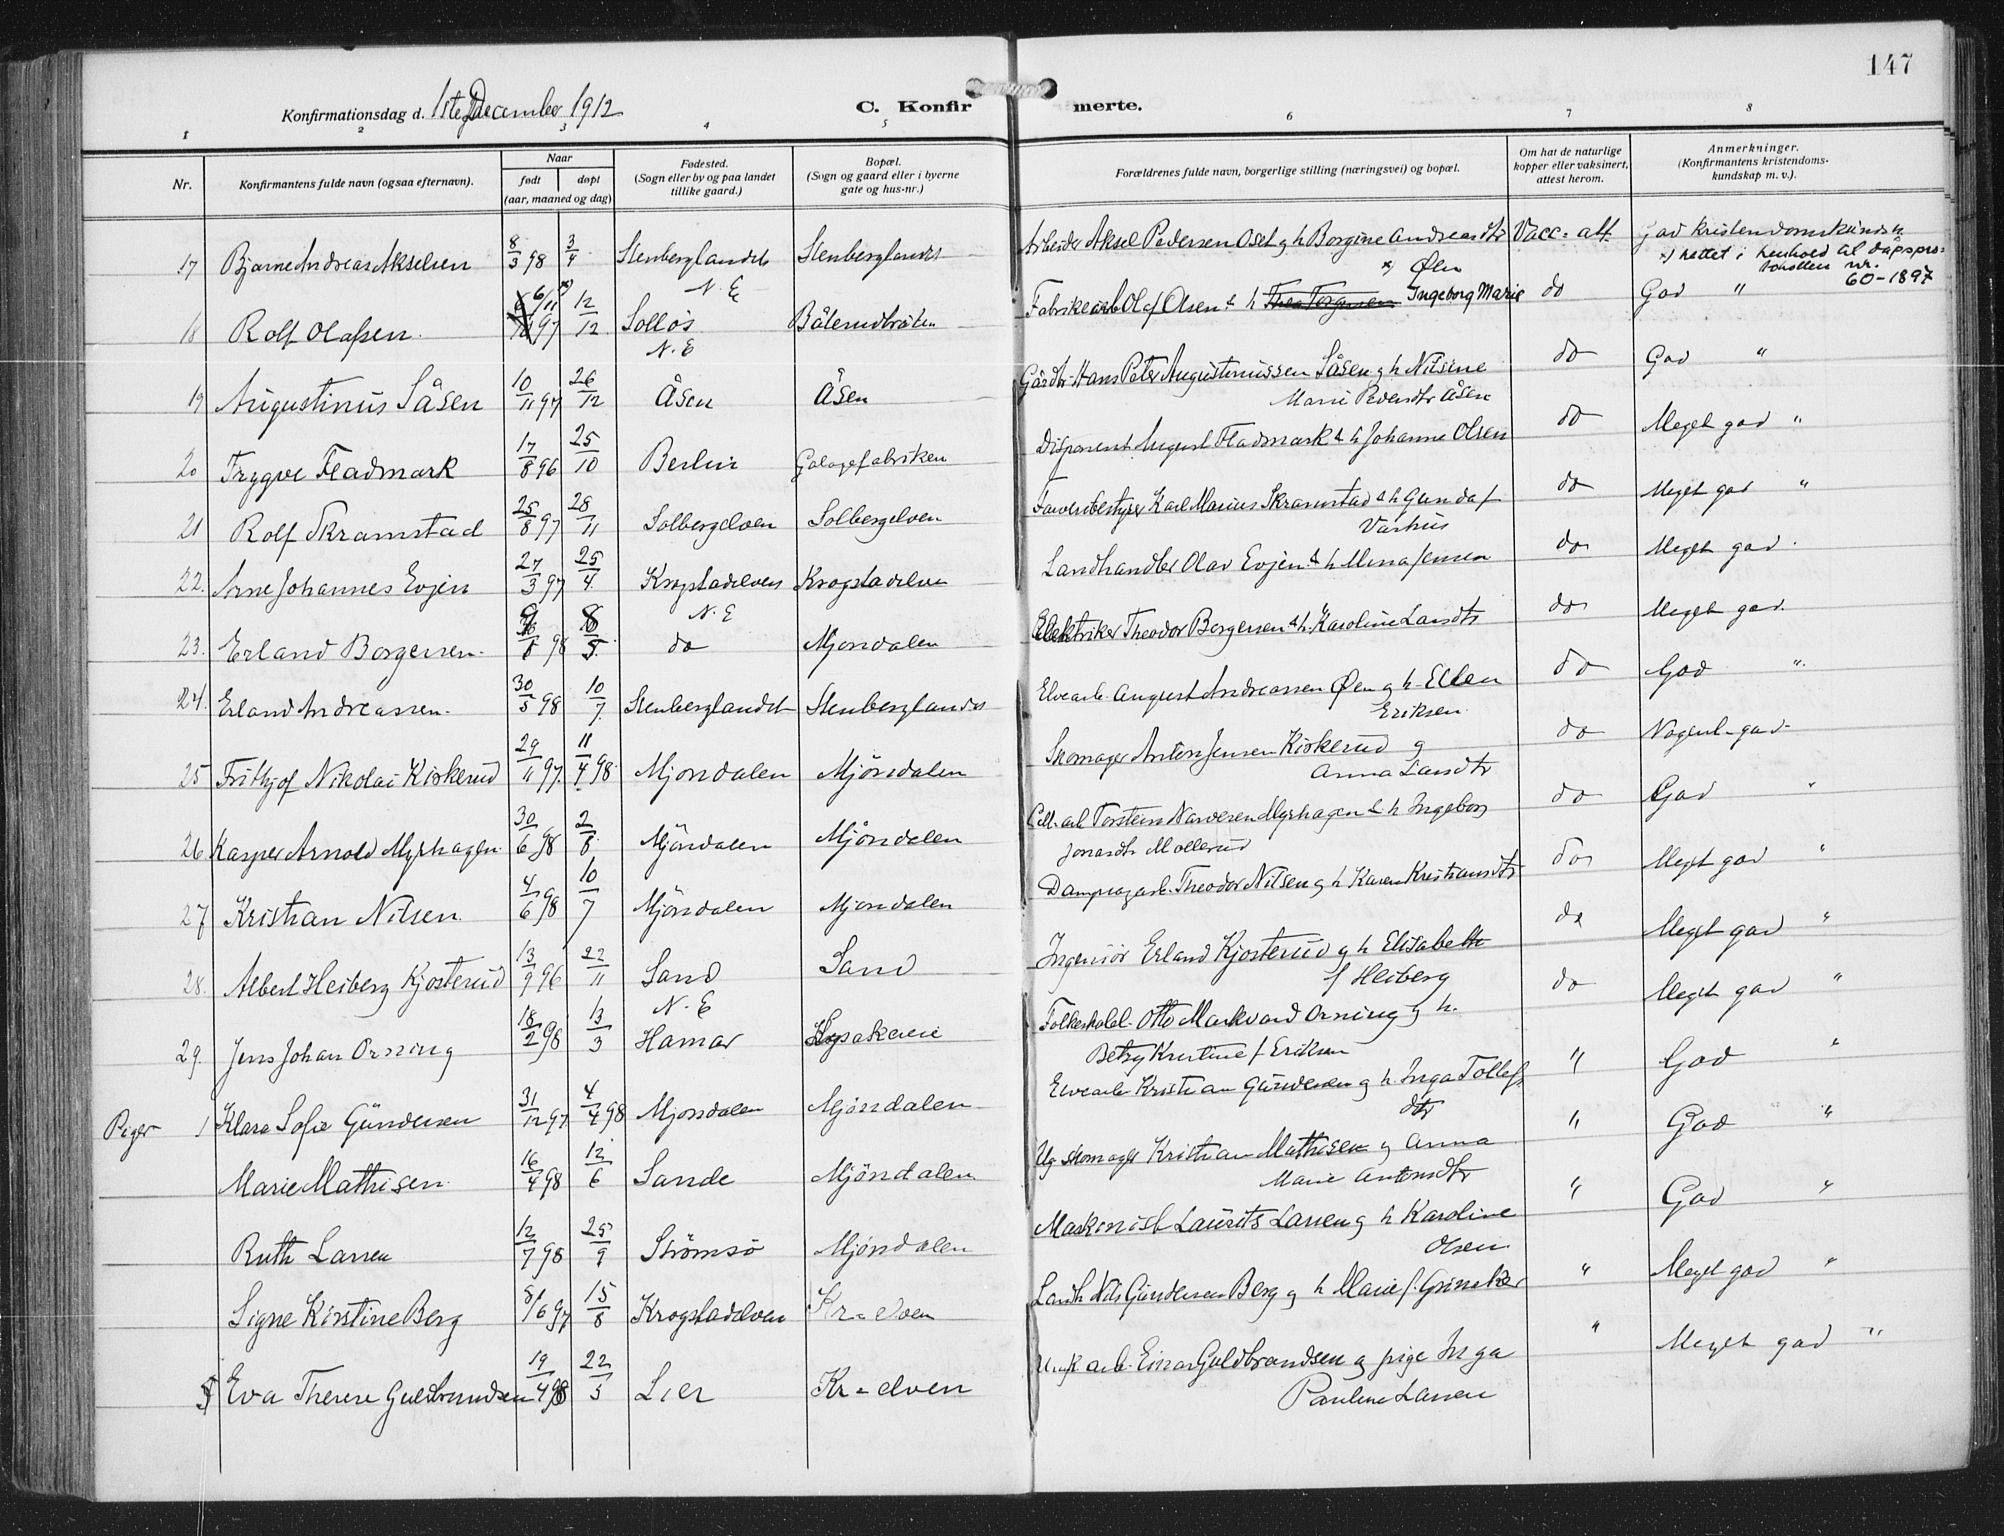 147
Konfirmationsdag d. 1ste December 1912
C. Konfirmerte.
1 2 3 4 5 6 7 8
Nr. Konfirmantens fulde navn (ogsaa efternavn). Naar født døpt (aar, maaned og dag) Fødested. (Sogn eller by og paa landet tillike gaard.) Bopæl. (Sogn og gaard eller i byerne gate og hus-nr.) Forældrenes fulde navn, borgerlige stilling (næringsvei) og bopæl. Om hat de naturlige kopper eller vaksinert, attest herom. Anmerkninger. (Konfirmantens kristendoms-kundskap m. v.).
17 Bjarne Andreas Akselsen 8/3 98 3/4 Stenberglandet Stenberglandet Arbeider Aksel Pedersen Oset og h Borgine Andreasdtr Vacc. att. God kristendomskundsk.
x) rettet i henhold til dåpspro-
tokollen nr.
60-1897
N.E x) Øen
18 Rolf Olafsen. 6/11 97 12/12 Solløs Båterudbråten Fabrikearb Olaf Olsen & h Thea Torgersen Ingeborg Marie do God "
N.E
19 Augustinus Såsen 10/11 97 26/12 Åsen Åsen Gårdbr. Hans Peter Augustinussen Såsen og h Nilsine do God "
Marie Pedersdtr Åsen
20 Trygve Fladmark 17/8 96 25/10 Berlin Galagefabriken Disponent August Fladmark & h Johanne Olsen do Meget god "
21 Rolf Skramstad 25/8 97 28/11 Solbergelven Solbergelven Farveribestyrer Karl Marius Skramstad & h Gunda f do Meget god "
Varhus
22. Arne Johannes Evjen 27/3 97 25/4 Krogstadelven Krogstadelven Landhandler Olav Evjen & h Mina Jensen do Meget god.
N.E
23. Erland Borgersen. 98 do Mjøndalen Elektriker Theodor Borgersen & h. Karoline Larsdtr do Meget god.
24. Erland Andreassen. 30/5 98 10/7 Stenberglandet Stenberglandet Elvearb. August Andreassen Øen og h. Ellen do God "
Eriksen.
25 Frithjof Nikolai Kirkerud 29/11 97 11/4 98 Mjöndalen Mjöndalen Skomager Anton Jensen Kirkerud og do Nogenl. god
Anna Larsdtr
26 Kasper Arnold Myrhagen 30/6 98 2/8 Mjöndalen Mjöndalen Cell. arb Torstein Narvesen Myrhagen & h Ingeborg do God "
Jonasdtr Mollerud
27 Kristian Nilsen 4/6 98 10/7 Mjöndalen Mjöndalen Dampsagarb. Theodor Nilsen og h Karen Kristiansdtr do Meget god "
28. Albert Heiberg Kjosterud 13/9 96 22/11 Sand Sand Ingeniör Erland Kjosterud og h Elisabeth do Meget god "
f Heiberg
N.E
29. Jens Johan Orning 18/2 98 13/3 Hamar Folkeskolel. Otto Markvard Orning og h. do Meget god "
Betzy Kristine f Eriksen
Piger 1 Klara Sofie Gündersen 31/12 97 4/4 98 Mjöndalen Mjöndalen Elvearb Kristian Gündersen og h Inga Tollefs " God "
dtr
Marie Mathisen 16/4 98 12/6 Sande Mjöndalen Ug skomager Kristian Mathisen og Anna " God "
Marie Antonsdtr
Ruth Larsen 12/7 98 25/9 Strömsö Mjöndalen Maskinist Laurits Larsen og h Karoline " God "
Olsen.
Signe Kirstine Berg 8/6 97 15/8 Krogstadelven Kr-elven Landh. Nils Gündersen Berg og h Marie f. " Meget god "
5 Eva Therese Guldbrandsen 19/4 98 22/5 Lier Kr-elven arb. Einar Guldbrandsen og pige Inga " Meget god "
Pauline Larsen